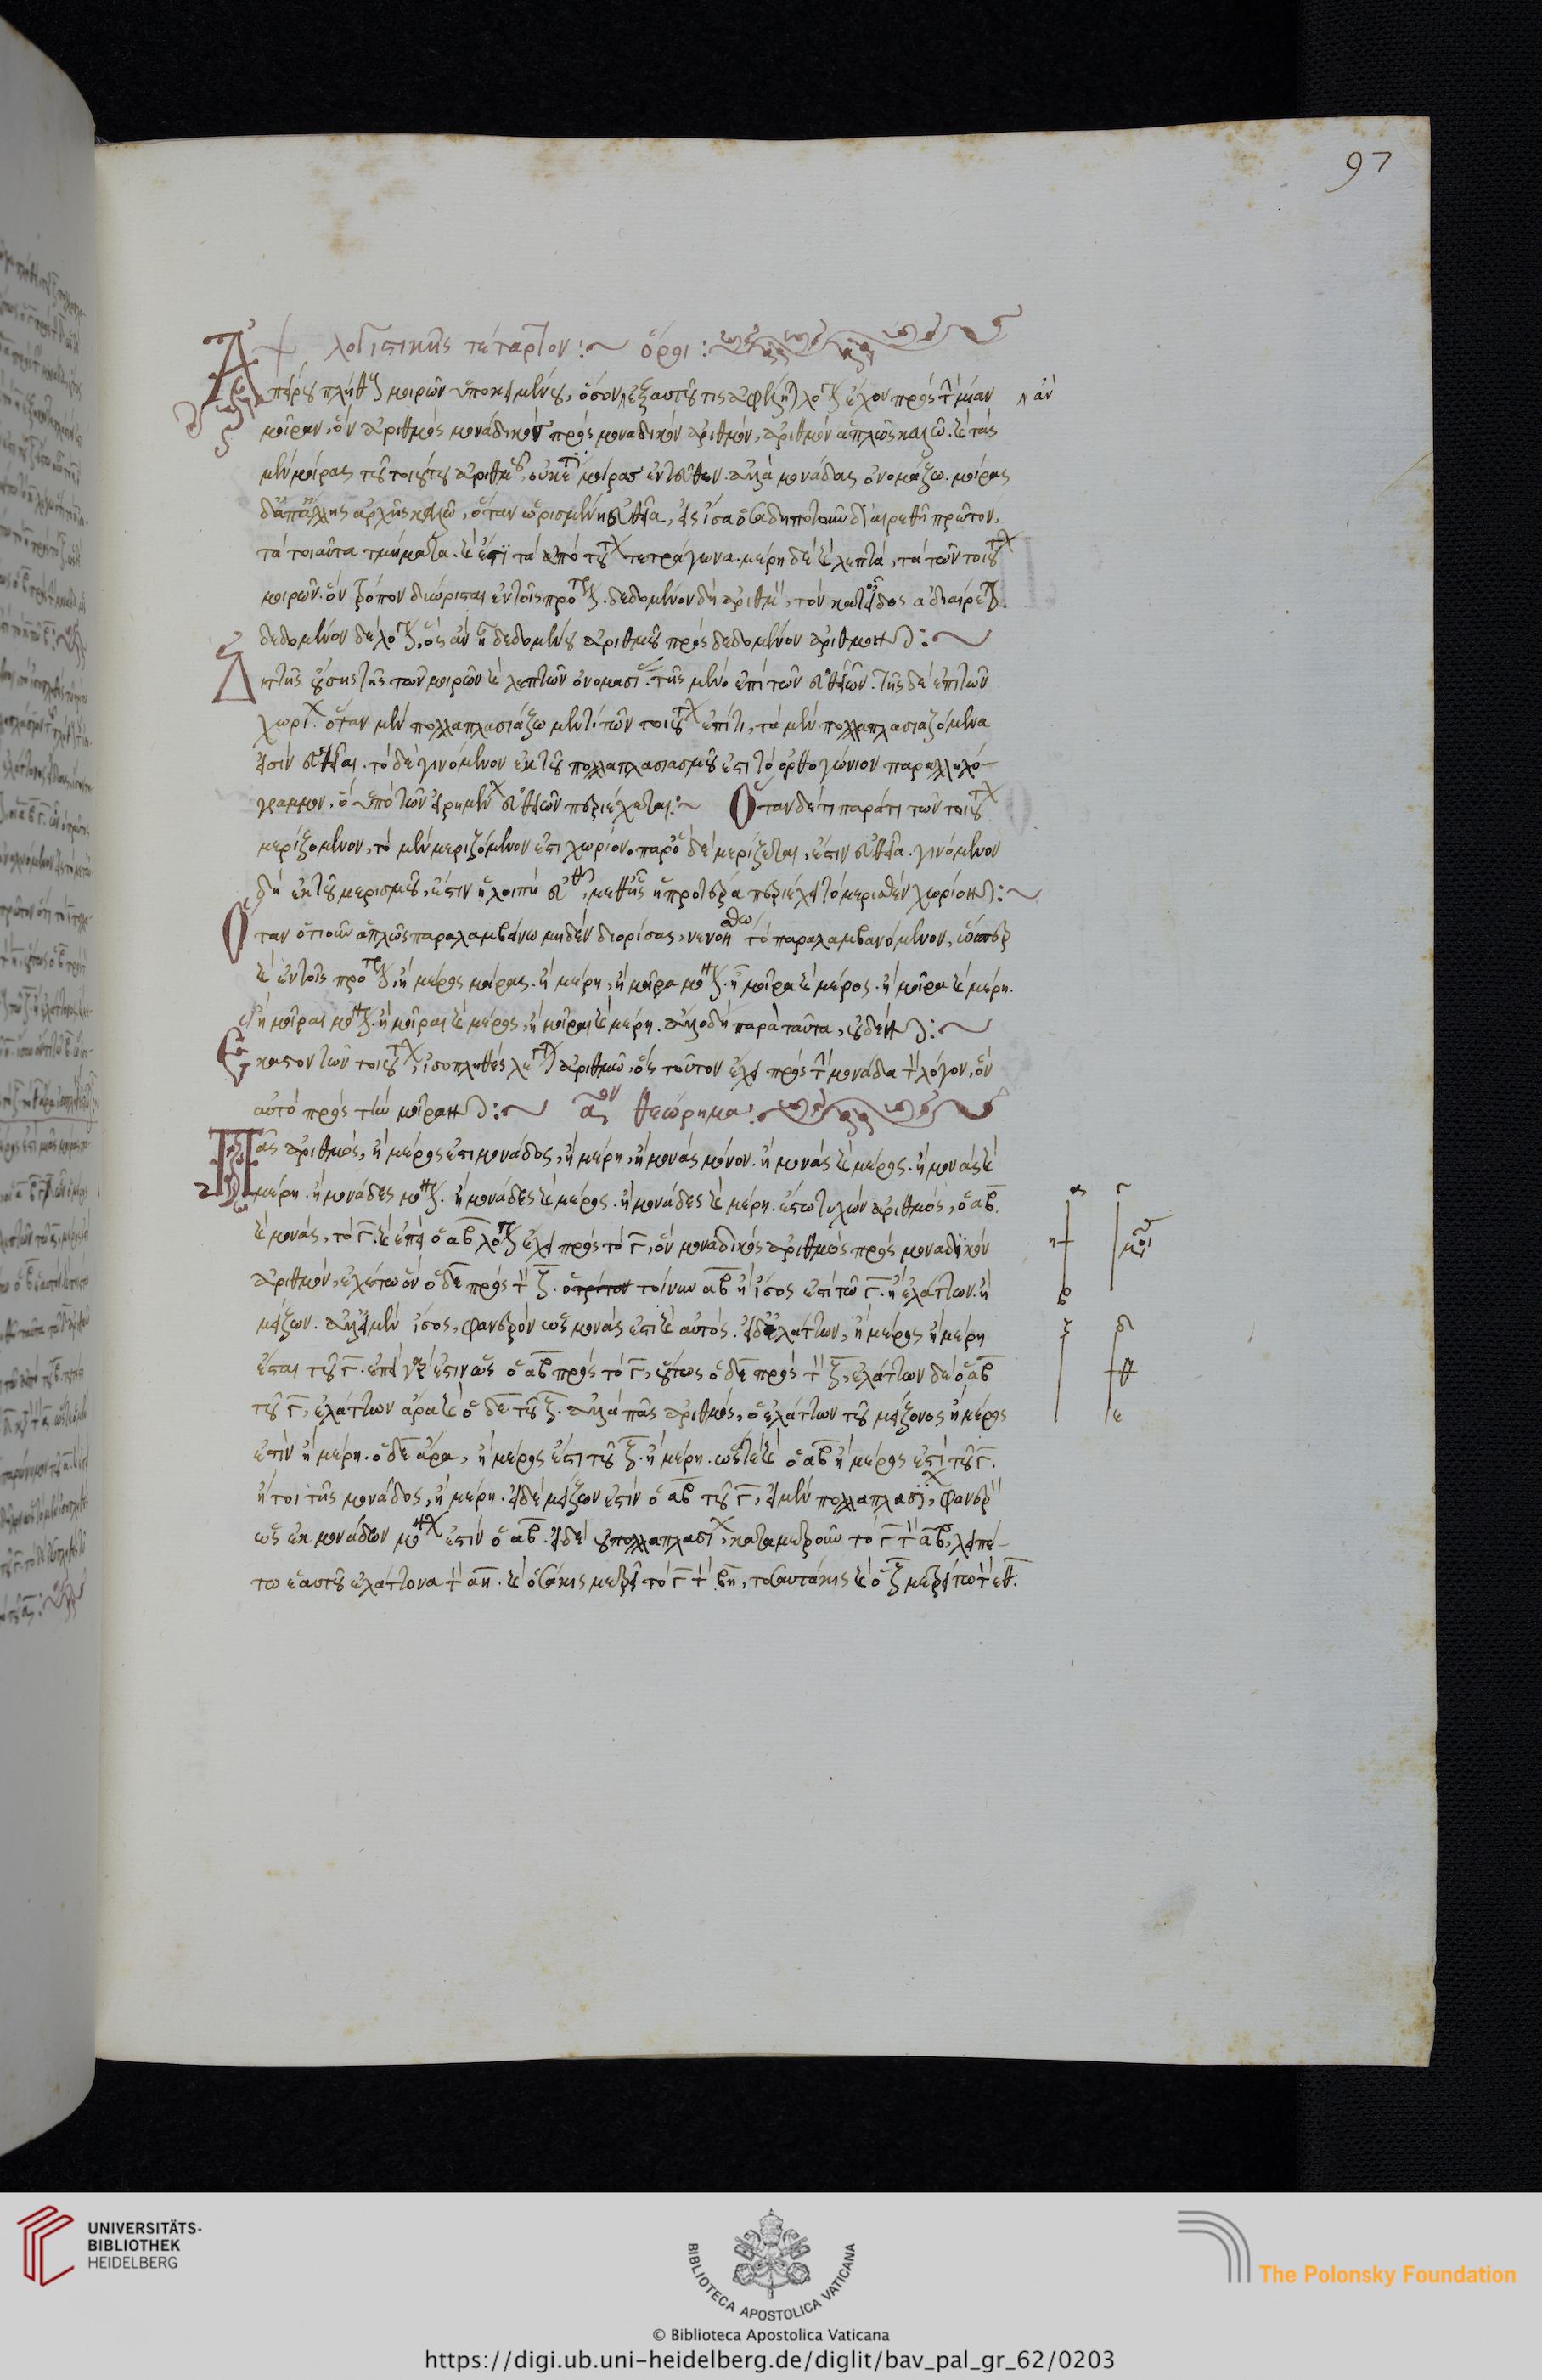 97
λογιστικῆς τέταρτον :~ ὅροι :
Ἀπείρου πλήθους μοιρῶν ὑποκειμένου, ὁσονεξαστοῦ τις ἀφέξῃ λόγον ἔχον πρὸς τ μίαν
ἂν
μοῖραν, ὃν ἀριθμὸς μοναδικὸς πρὸς μοναδικὸν ἀριθμόν, ἀριθμὸν ἁπλῶς καλῶ. καὶ τὰς
μὲν μοίρας τοῦ τοιούτου ἀριθμοῦ, οὐκέτι μοίρας ἐντεῦθεν. ἀλλὰ μονάδας ὀνομάζω. μοίρας
δ' ἀπ' ἄλλης ἀρχῆς καλῶ, ὅταν ὡρισμένη εὐθεῖα, εἰς ἴσα ὁσαδηποτοῦν διαιρεθῇ πρῶτον,
τὰ τοιαῦτα τμήματα. καὶ ἔτι τὰ ἀπὸ τούτων τετράγωνα. μέρη δὲ καὶ λεπτά, τὰ τῶν τοιούτων
μοιρῶν. ὃν τρόπον διώρισται ἐν τοῖς πρότερον. δεδομένον δὴ ἀριθμόν, τὸν κατ' εἶδος
δεδομένον δὲ λόγον, ὃς ἂν ᾖ δεδομένου ἀριθμοῦ πρὸς δεδομένον ἀριθμόν :~
Διττῆς οὔσης τῆς τῶν μοιρῶν καὶ λεπτῶν ὀνομασίας. τῆς μὲν ἐπὶ τῶν εὐθειῶν. τῆς δὲ ἐπὶ τῶν
χωρίων. ὅταν μὲν πολλαπλασιάζω μέν τι τῶν τοιούτων ἐπί τι, τὰ μὲν πολλαπλασιαζόμενα
εἰσὶν εὐθεῖαι. τὸ δὲ γινόμενον ἐκ τοῦ πολλαπλασιασμοῦ ἐστι τὸ ὀρθογώνιον παραλληλό-
γραμμον. ὃ ὑπὸ τῶν εἰρημένων εὐθειῶν περιέχεται :~ Ὅταν δέ τι παρά τι τῶν τοιούτων
μερίζομενον, τὸ μὲν μεριζόμενον ἐστι χωρίον. παρ' ὃ δὲ μερίζεται, ἐστιν εὐθεῖα. γινόμενον
δὴ ἐκ τοῦ μερισμοῦ, ἐστιν ἡ λοιπὴ εὐθεῖα, μεθ' ἧς ἡ προτέρα περιέχει τὸ μερισθὲν χωρίον :~
Ὅταν ὁτιοῦν ἁπλῶς παραλαμβάνω μηδὲν διορίσας, νενοήσθω τὸ παραλαμβανόμενον, ὥσπερ
καὶ ἐν τοῖς πρότερον, ἢ μέρος μοίρας. ἢ μέρη, ἢ μοῖρα μόνον. ἢ μοῖρα καὶ μέρος. ἢ μοῖρα καὶ μέρη.
ἢ μοῖραι μόνον. ἢ μοῖραι καὶ μέρος, ἢ μοῖραι καὶ μέρη. ἄλλο δὴ παρὰ ταῦτα, οὐδέν :~
Ἕκαστον τῶν τοιούτων, ἰσοπληθὲς λέγεται ἀριθμῷ, ὃς τοῦτον ἔχει πρὸς τ μονάδα τ λόγον, ὃν
αὐτὸ πρὸς τὴν μοῖραν :~ αον θεώρημα :
Πᾶς ἀριθμός, ἢ μέρος ἐστι μονάδος, ἢ μέρη, ἢ μονὰς μόνον. ἢ μονὰς καὶ μέρος. ἢ μονὰς καὶ
μέρη. ἢ μονάδες μόνον. ἢ μονάδες καὶ μέρος. ἢ μονάδες καὶ μέρη. ἔστω τυχὼν ἀριθμός, ὁ αβ.
καὶ μονάς, τὸ γ. καὶ ἐπεὶ ὁ αβ λόγον ἔχει πρὸς τὸ γ, ὃν μοναδικὸς ἀριθμὸς πρὸς μοναδικὸν
ἀριθμόν, ἐχέτω ὃν ὁ δε πρὸς τ ζ. ὁ τοίνυν αβ ἢ ἴσος ἐστὶ τῷ γ. ἢ ἐλάττων. ἢ
μείζων. ἀλλ' εἰ μὲν ἴσος, φανερὸν ὡς μονάς ἐστι καὶ αὐτός. εἰ δὲ ἐλάττων, ἢ μέρος ἢ μέρη
ἔσται τοῦ γ. ἐπεὶ γάρ ἐστιν ὡς ὁ αβ πρὸς τὸ γ, οὕτως ὁ δε πρὸς τ ζ, ἐλάττων δὲ ὁ αβ
τοῦ γ, ἐλάττων ἄρα καὶ ὁ δε τοῦ ζ. ἀλλὰ πᾶς ἀριθμός, ὁ ἐλάττων τοῦ μείζονος ἢ μέρος
ἐστὶν ἢ μέρη. ὁ δε ἄρα, ἢ μέρος ἐστι τοῦ ζ. ἢ μέρη. ὥστε καὶ ὁ αβ ἢ μέρος ἐστὶ τοῦ γ.
ἤτοι τῆς μονάδος, ἢ μέρη. εἰ δὲ μείζων ἐστὶν ὁ αβ τοῦ γ, εἰ μὲν πολλαπλασίων, φανερὸν
ὡς ἐκ μονάδων μόνων ἐστὶν ὁ αβ. εἰ δὲ οὐ πολλαπλασίων, καταμετροῦν τὸ γ τ αβ, λειπέ-
τω ἑαυτοῦ ἐλάττονα τ αη. καὶ ὁσάκις μετρεῖ τὸ γ τ βη, τοσαυτάκις καὶ ὁ ζ μετρείτω τ εθ.
α γ
η μον
β
ζ δ
θ
ε
UNIVERSITÄTS-
BIBLIOTHEK
HEIDELBERG
BIBLIOTECA APOSTOLICA VATICANA
The Polonsky Foundation
© Biblioteca Apostolica Vaticana
https://digi.ub.uni-heidelberg.de/diglit/bav_pal_gr_62/0203